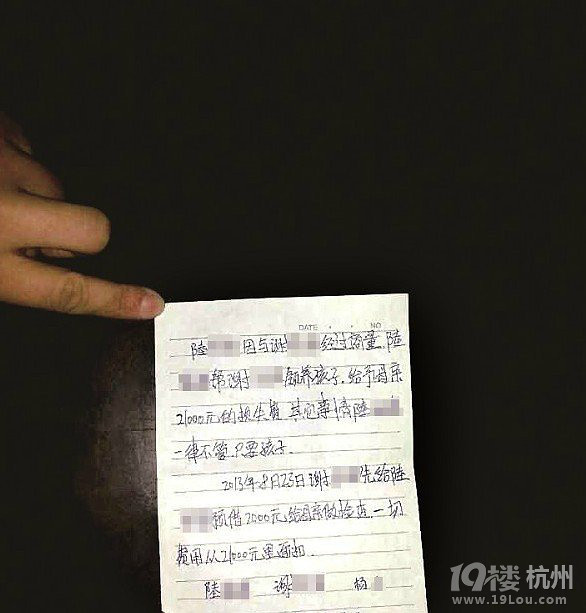 DATE · · NO
陆 因与谢 经过商量,陆
帮谢 领养孩子.给予母亲
21000元的抚生费.其它事情陆
一律不管.只要孩子.
2013年8月23日谢 先给陆
预借2000元给母亲做检查.一切
费用从21000元里面扣.
陆 谢 杨
19楼 杭州
www.19Lou.com